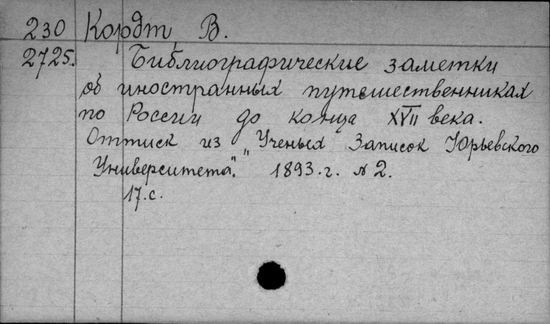 230 Кордт В.
2725. Библиографические заметки
об иностранных путешественниках
по России до конца XVII века.
Оттиск из „Ученых Записок Юрьевского
Университета". 1893.г. № 2.
17.с.